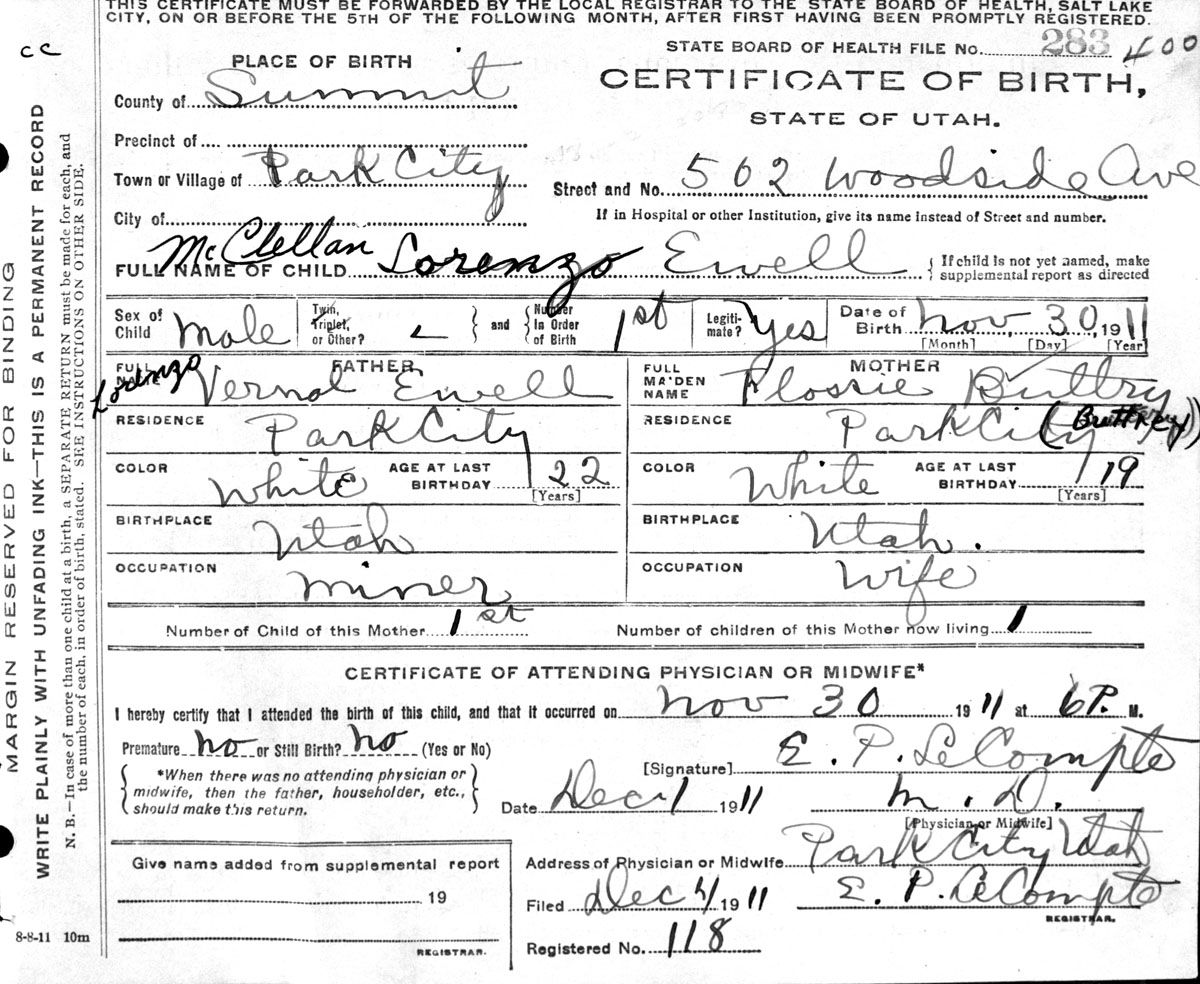 THIS CERTIFICATE MUST BE FORWARDED BY THE LOCAL REGISTRAR TO THE STATE BOARD OF HEALTH, SALT LAKE
CITY, ON OR BEFORE THE 5TH OF THE FOLLOWING MONTH, AFTER FIRST HAVING BEEN PROMPTLY REGISTERED.
cc
STATE BOARD OF HEALTH FILE No. 283 400
PLACE OF BIRTH
CERTIFICATE OF BIRTH,
STATE OF UTAH.
County of Summit
Precinct of
Town or Village of Park City
Street and No. 502 Woodside Ave
City of
If in Hospital or other Institution, give its name instead of Street and number.
McClellan
FULL NAME OF CHILD Lorenzo Ewell { If child is not yet named, make
supplemental report as directed
Sex of Child Male
Twin, Triplet, or Other? } and { Number In Order of Birth 1st
Legiti-mate? Yes
Date of Birth Nov, 30, 1911
[Month] [Day] [Year]
FATHER
FULL NAME Lorenzo Vernal Ewell
MOTHER
FULL MAIDEN NAME Flossie Buttry
RESIDENCE Park City
RESIDENCE Park City
COLOR White AGE AT LAST BIRTHDAY 22 [Years]
COLOR White AGE AT LAST BIRTHDAY 19 [Years]
BIRTHPLACE Utah
BIRTHPLACE Utah.
OCCUPATION Miner
OCCUPATION Wife
Number of Child of this Mother 1st
Number of children of this Mother now living 1
CERTIFICATE OF ATTENDING PHYSICIAN OR MIDWIFE*
I hereby certify that I attended the birth of this child, and that it occurred on Nov 30 1911 at 6 P. M.
Premature No or Still Birth? No (Yes or No)
[Signature] E. P. LeCompte
{ *When there was no attending physician or
midwife, then the father, householder, etc.,
should make this return. }
Date Dec 1 1911
M. D.
[Physician or Midwife]
Give name added from supplemental report
19
REGISTRAR.
Address of Physician or Midwife Park City Utah
Filed Dec 4 1911 E. P. LeCompte
REGISTRAR.
Registered No. 118
MARGIN RESERVED FOR BINDING
WRITE PLAINLY WITH UNFADING INK—THIS IS A PERMANENT RECORD
N. B.—In case of more than one child at a birth, a SEPARATE RETURN must be made for each, and
the number of each, in order of birth, stated. SEE INSTRUCTIONS ON OTHER SIDE.
8-8-11 10m